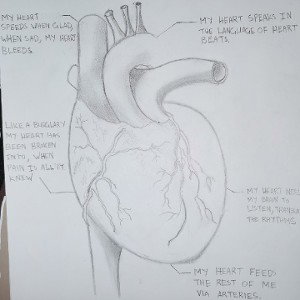 MY HEART
SPEEDS WHEN GLAD,
WHEN SAD, MY HEART
BLEEDS.
MY HEART SPEAKS IN
THE LANGUAGE OF HEART
BEATS.
LIKE A BURGLARY
MY HEART HAS
BEEN BROKEN
INTO, WHEN
PAIN IS ALL IT
KNEW
MY HEART
MY BRAIN TO
LISTEN,
THE RHYTHMS
MY HEART FEEDS
THE REST OF ME
VIA ARTERIES.